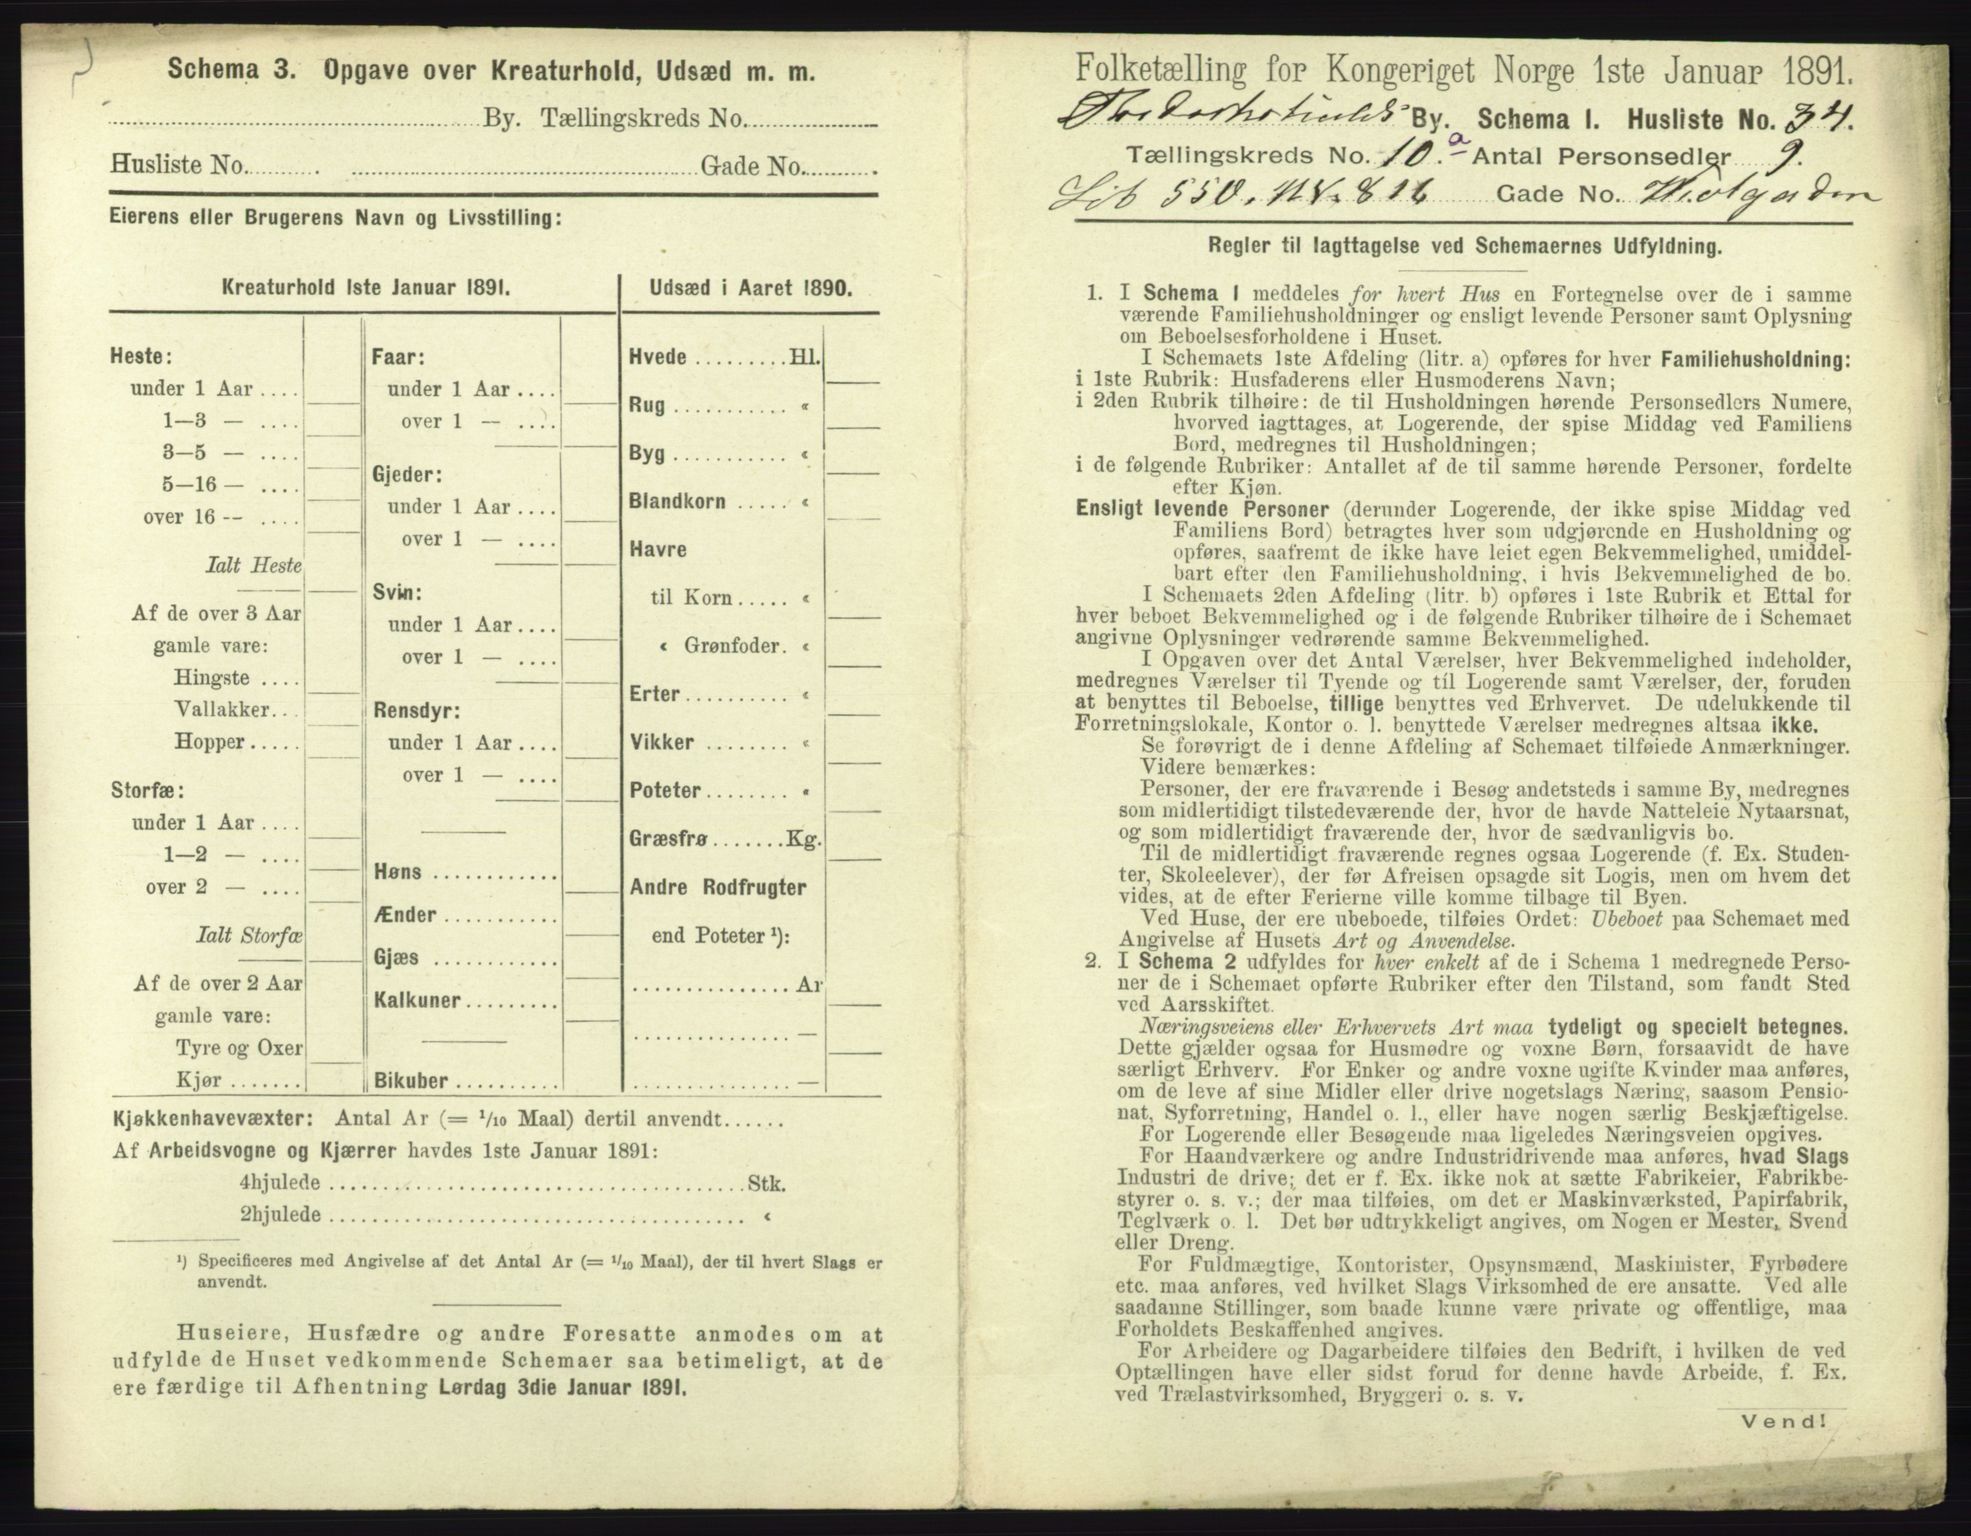 Schema 3. Opgave over Kreaturhold, Udsæd m. m.
By. Tællingskreds No.
Husliste No. Gade No.
Eierens eller Brugerens Navn og Livsstilling:
Kreaturhold 1ste Januar 1891.
Heste:
under 1 Aar ....
1—3 — ....
3—5 — ....
5—16 — ....
over 16 -- ....
Ialt Heste
Af de over 3 Aar
gamle vare:
Hingste ....
Vallakker...
Hopper.....
Storfæ:
under 1 Aar ....
1—2 — ....
over 2 — ....
Ialt Storfæ
Af de over 2 Aar
gamle vare:
Tyre og Oxer
Kjør .......
Faar:
under 1 Aar ....
over 1 — ....
Gjeder:
under 1 Aar ....
over 1 — ....
Svin:
under 1 Aar ....
over 1 — ....
Rensdyr:
under 1 Aar ....
over 1 — ....
Høns ............
Ænder ...........
Gjæs ............
Kalkuner.........
Bikuber ..........
Udsæd i Aaret 1890.
Hvede .........Hl.
Rug ........... «
Byg ........... «
Blandkorn ..... «
Havre
til Korn..... «
« Grønfoder. «
Erter.......... «
Vikker ........ «
Poteter........ «
Græsfrø.......Kg.
Andre Rodfrugter
end Poteter ¹):
............... Ar
............... —
............... —
Kjøkkenhavevæxter: Antal Ar (= 1/10 Maal) dertil anvendt......
Af Arbeidsvogne og Kjærrer havdes 1ste Januar 1891:
4hjulede ........................................Stk.
2hjulede ........................................ «
¹) Specificeres med Angivelse af det Antal Ar (= 1/10 Maal), der til hvert Slags er
anvendt.
Huseiere, Husfædre og andre Foresatte anmodes om at
udfylde de Huset vedkommende Schemaer saa betimeligt, at de
ere færdige til Afhentning Lørdag 3die Januar 1891.
Folketælling for Kongeriget Norge 1ste Januar 1891.
By. Schema I. Husliste No. 34.
Tællingskreds No. 10.a Antal Personsedler 9.
Lit 550. Gade No.
Regler til Iagttagelse ved Schemaernes Udfyldning.
1. I Schema 1 meddeles for hvert Hus en Fortegnelse over de i samme
værende Familiehusholdninger og ensligt levende Personer samt Oplysning
om Beboelsesforholdene i Huset.
I Schemaets 1ste Afdeling (litr. a) opføres for hver Familiehusholdning:
i 1ste Rubrik: Husfaderens eller Husmoderens Navn;
i 2den Rubrik tilhøire: de til Husholdningen hørende Personsedlers Numere,
hvorved iagttages, at Logerende, der spise Middag ved Familiens
Bord, medregnes til Husholdningen;
i de følgende Rubriker: Antallet af de til samme hørende Personer, fordelte
efter Kjøn.
Ensligt levende Personer (derunder Logerende, der ikke spise Middag ved
Familiens Bord) betragtes hver som udgjørende en Husholdning og
opføres, saafremt de ikke have leiet egen Bekvemmelighed, umiddel-
bart efter den Familiehusholdning, i hvis Bekvemmelighed de bo.
I Schemaets 2den Afdeling (litr. b) opføres i 1ste Rubrik et Ettal for
hver beboet Bekvemmelighed og i de følgende Rubriker tilhøire de i Schemaet
angivne Oplysninger vedrørende samme Bekvemmelighed.
I Opgaven over det Antal Værelser, hver Bekvemmelighed indeholder,
medregnes Værelser til Tyende og til Logerende samt Værelser, der, foruden
at benyttes til Beboelse, tillige benyttes ved Erhvervet. De udelukkende til
Forretningslokale, Kontor o. l. benyttede Værelser medregnes altsaa ikke.
Se forøvrigt de i denne Afdeling af Schemaet tilføiede Anmærkninger.
Videre bemærkes:
Personer, der ere fraværende i Besøg andetsteds i samme By, medregnes
som midlertidigt tilstedeværende der, hvor de havde Natteleie Nytaarsnat,
og som midlertidigt fraværende der, hvor de sædvanligvis bo.
Til de midlertidigt fraværende regnes ogsaa Logerende (f. Ex. Studen-
ter, Skoleelever), der før Afreisen opsagde sit Logis, men om hvem det
vides, at de efter Ferierne ville komme tilbage til Byen.
Ved Huse, der ere ubeboede, tilføies Ordet: Ubeboet paa Schemaet med
Angivelse af Husets Art og Anvendelse.
2. I Schema 2 udfyldes for hver enkelt af de i Schema 1 medregnede Perso-
ner de i Schemaet opførte Rubriker efter den Tilstand, som fandt Sted
ved Aarsskiftet.
Næringsveiens eller Erhvervets Art maa tydeligt og specielt betegnes.
Dette gjælder ogsaa for Husmødre og voxne Børn, forsaavidt de have
særligt Erhverv. For Enker og andre voxne ugifte Kvinder maa anføres,
om de leve af sine Midler eller drive nogetslags Næring, saasom Pensio-
nat, Syforretning, Handel o. l., eller have nogen særlig Beskjæftigelse.
For Logerende eller Besøgende maa ligeledes Næringsveien opgives.
For Haandværkere og andre Industridrivende maa anføres, hvad Slags
Industri de drive; det er f. Ex. ikke nok at sætte Fabrikeier, Fabrikbe-
styrer o. s. v.; der maa tilføies, om det er Maskinværksted, Papirfabrik,
Teglværk o. l. Det bør udtrykkeligt angives, om Nogen er Mester, Svend
eller Dreng.
For Fuldmægtige, Kontorister, Opsynsmænd, Maskinister, Fyrbødere
etc. maa anføres, ved hvilket Slags Virksomhed de ere ansatte. Ved alle
saadanne Stillinger, som baade kunne være private og offentlige, maa
Forholdets Beskaffenhed angives.
For Arbeidere og Dagarbeidere tilføies den Bedrift, i hvilken de ved
Optællingen have eller sidst forud for denne havde Arbeide, f. Ex.
ved Trælastvirksomhed, Bryggeri o. s. v.
Vend!